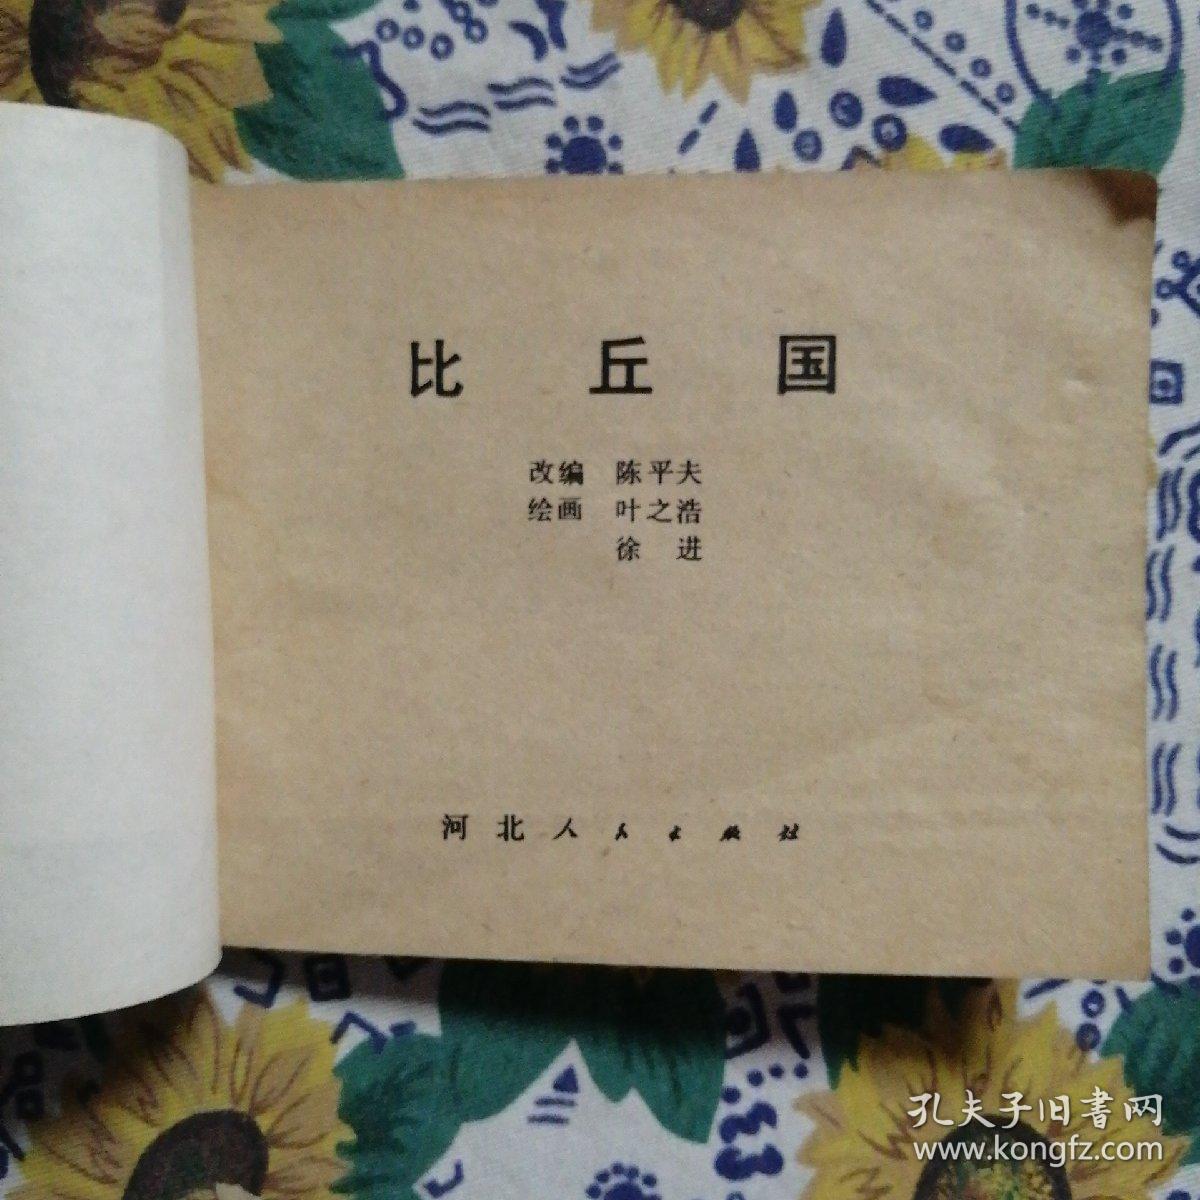 比丘国
改编 陈平夫
绘画 叶之浩
徐进
河北人民出版社
孔夫子旧書网
www.kongfz.com